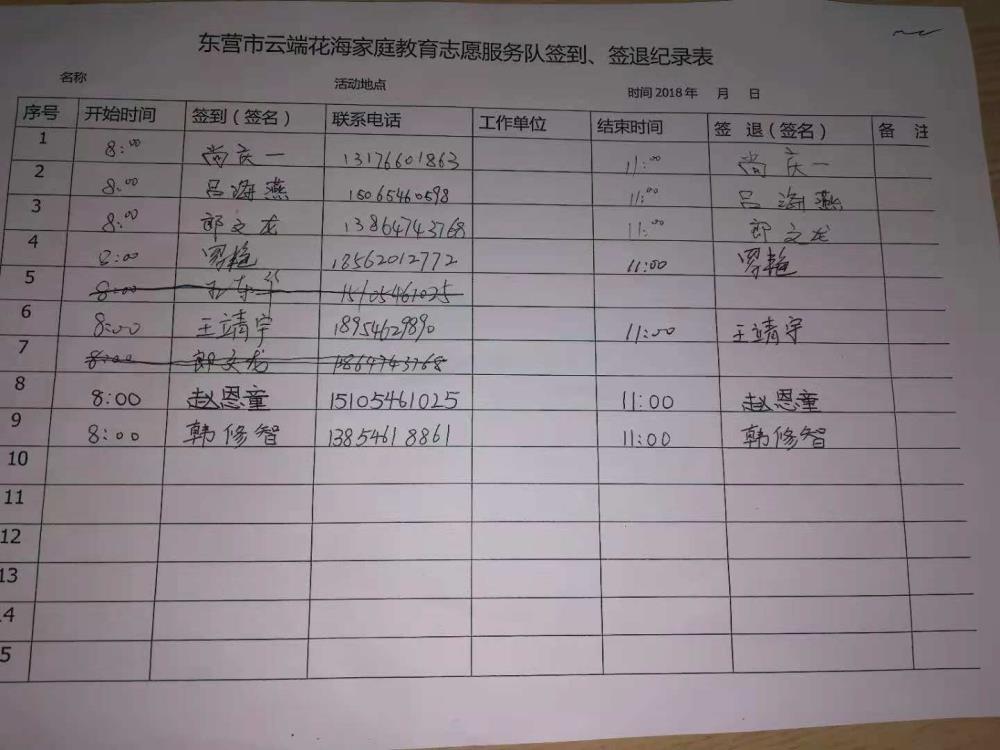 东营市云端花海家庭教育志愿服务队签到、签退纪录表
名称 活动地点 时间 2018 年 月 日
序号 开始时间 签到（签名） 联系电话 工作单位 结束时间 签 退（签名） 备 注
1 8:00 尚庆一 13176601863 11:00 尚庆一
2 8:00 吕海燕 15065460598 11:00 吕海燕
3 8:00 郎文龙 13864743768 11:00 郎文龙
4 8:00 罗艳 18562012772 11:00 罗艳
5 8:00 15105461025
6 8:00 王靖宇 18954629890 11:00 王靖宇
7 8:00 郎文龙 13864743768
8 8:00 赵恩童 15105461025 11:00 赵恩童
9 8:00 韩修智 13854618861 11:00 韩修智
10
11
12
13
14
5